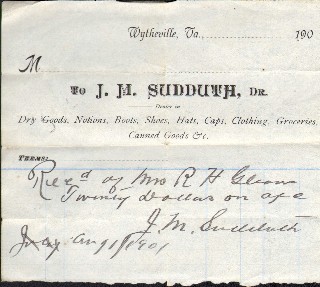 Wytheville, Va., 190
M
TO J. M. SUDDUTH, DR.
Dealer in
Dry Goods, Notions, Boots, Shoes, Hats, Caps, Clothing, Groceries,
Canned Goods &c.
TERMS:
Rec'd of Mrs R H
Twenty Dollars on a/c
J. M. Sudduth
Aug 1901